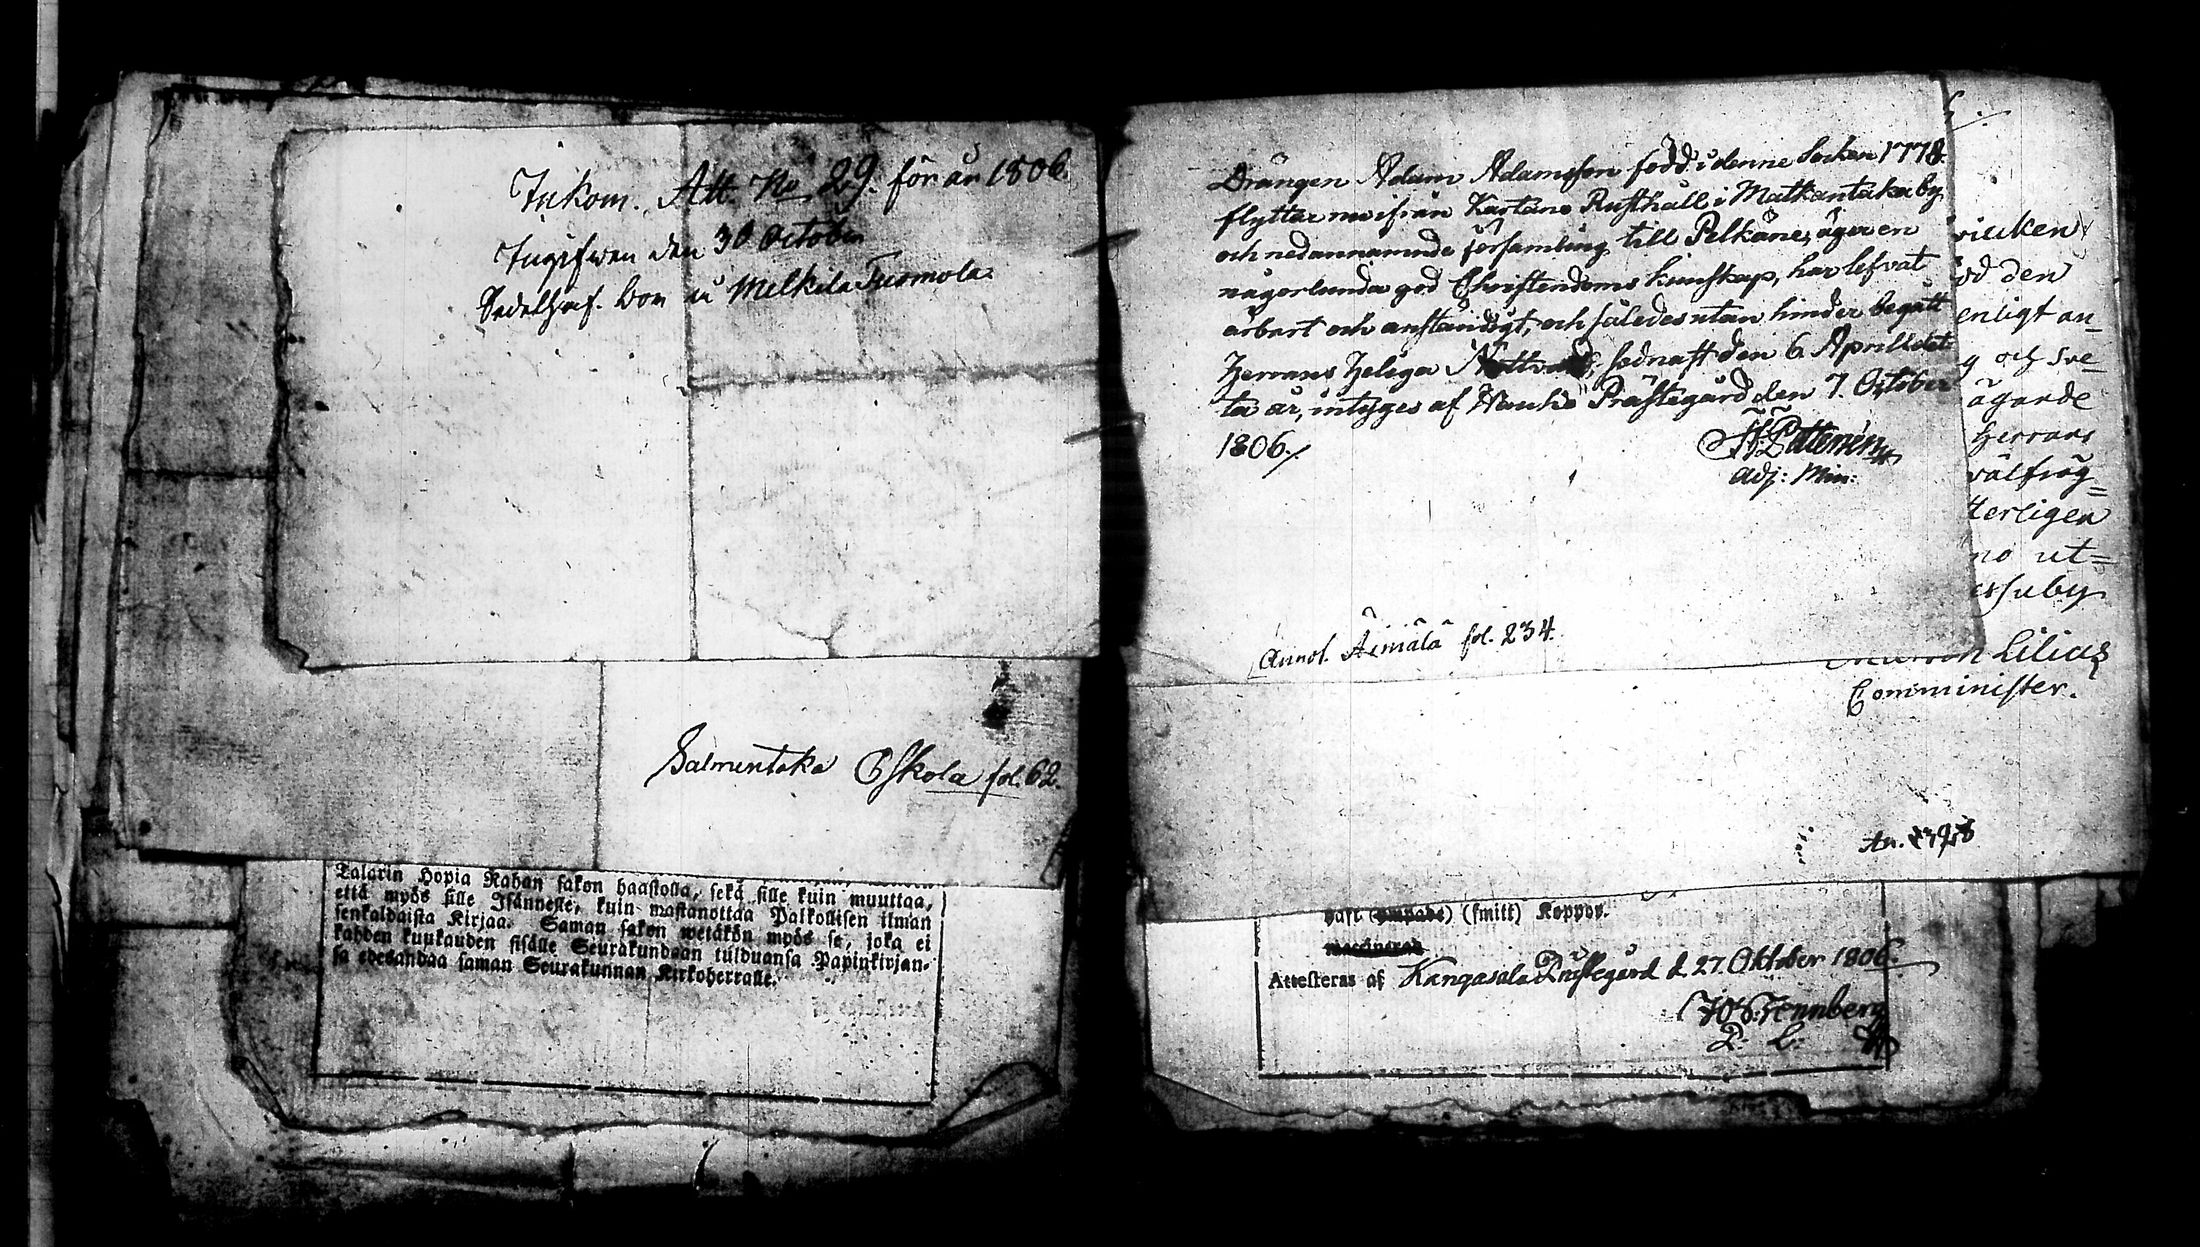 Inkom. Att. No 29. för år 1806.
Ingifwen den 30 October
Sedelhaf. bor i Melkila Tuomola.
Salmentaka Eskola fol. 62.
Talarin Hopia Rahan sakon haastolla, sekä sille kuin muuttaa,
että myös sille Isännelle, kuin mastanottaa Palkollisen ilman
senkaldaista Kirjaa. Saman sakon wetäkön myös se, joka ei
kahden kuukauden sisälle Seurakundaan tulduansa Papinkirjan-
sa edesandaa saman Seurakunnan Kirkoherralle.
Drängen Adam Adamsson född i denne Socken 1778.
flyttar nu ifrån Kartano Rusthåll i Matkantaka by
och nedannämnde församling till Pelkäne, äger en
någorlunda god Christendoms kunskap, har lefvat
ärbart och anständigt, och således utan hinder begått
Herrans Heliga Nattvard, sednast den 6 April det-
ta år, intyges af Hauho Prästegård den 7. October
1806./
Adj: Min:
Annot. Äimälä fol. 234.
vinken
öd den
enligt an-
g och sve-
ägande
Herrans
välfräg-
terligen
no ut-
suby
Lilius
Comminister.
haft (smitt) Koppor.
Attesteras af Kangasala Prästegård d. 27. Oktober 1806.
P. L.